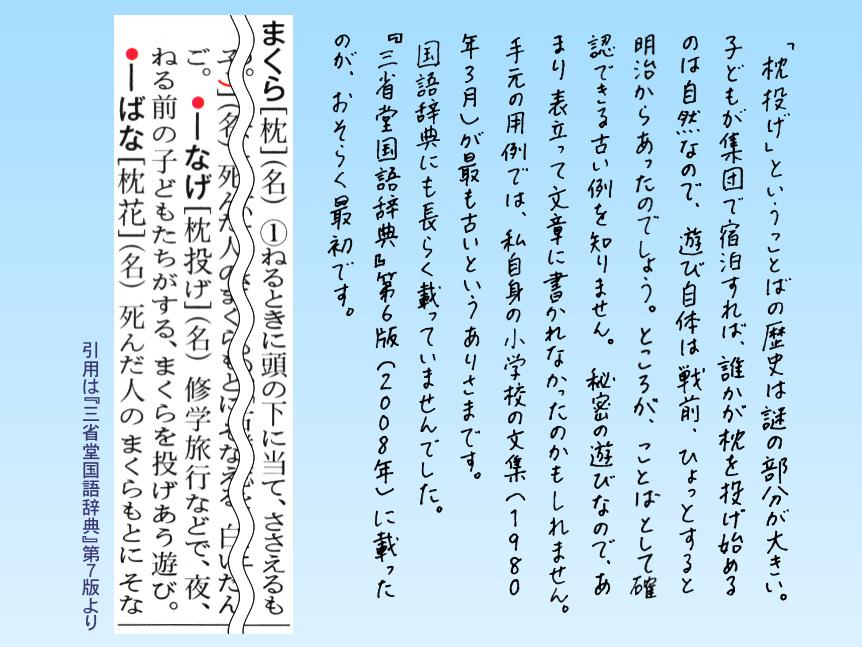 「枕投げ」ということばの歴史は謎の部分が大きい。
子どもが集団で宿泊すれば、誰かが枕を投げ始める
のは自然なので、遊び自体は戦前、ひょっとすると
明治からあったのでしょう。ところが、ことばとして確
認できる古い例を知りません。秘密の遊びなので、あ
まり表立って文章に書かれなかったのかもしれません。
手元の用例では、私自身の小学校の文集(1980
年3月)が最も古いというありさまです。
国語辞典にも長らく載っていませんでした。
『三省堂国語辞典』第6版(2008年)に載った
のが、おそらく最初です。
まくら[枕](名)①ねるときに頭の下に当て、ささえるも
(名)死んだ人のまくらもとにそなえる、白いだん
ご。●―なげ[枕投げ](名)修学旅行などで、夜、
ねる前の子どもたちがする、まくらを投げあう遊び。
●―ばな[枕花](名)死んだ人のまくらもとにそな
引用は『三省堂国語辞典』第7版より